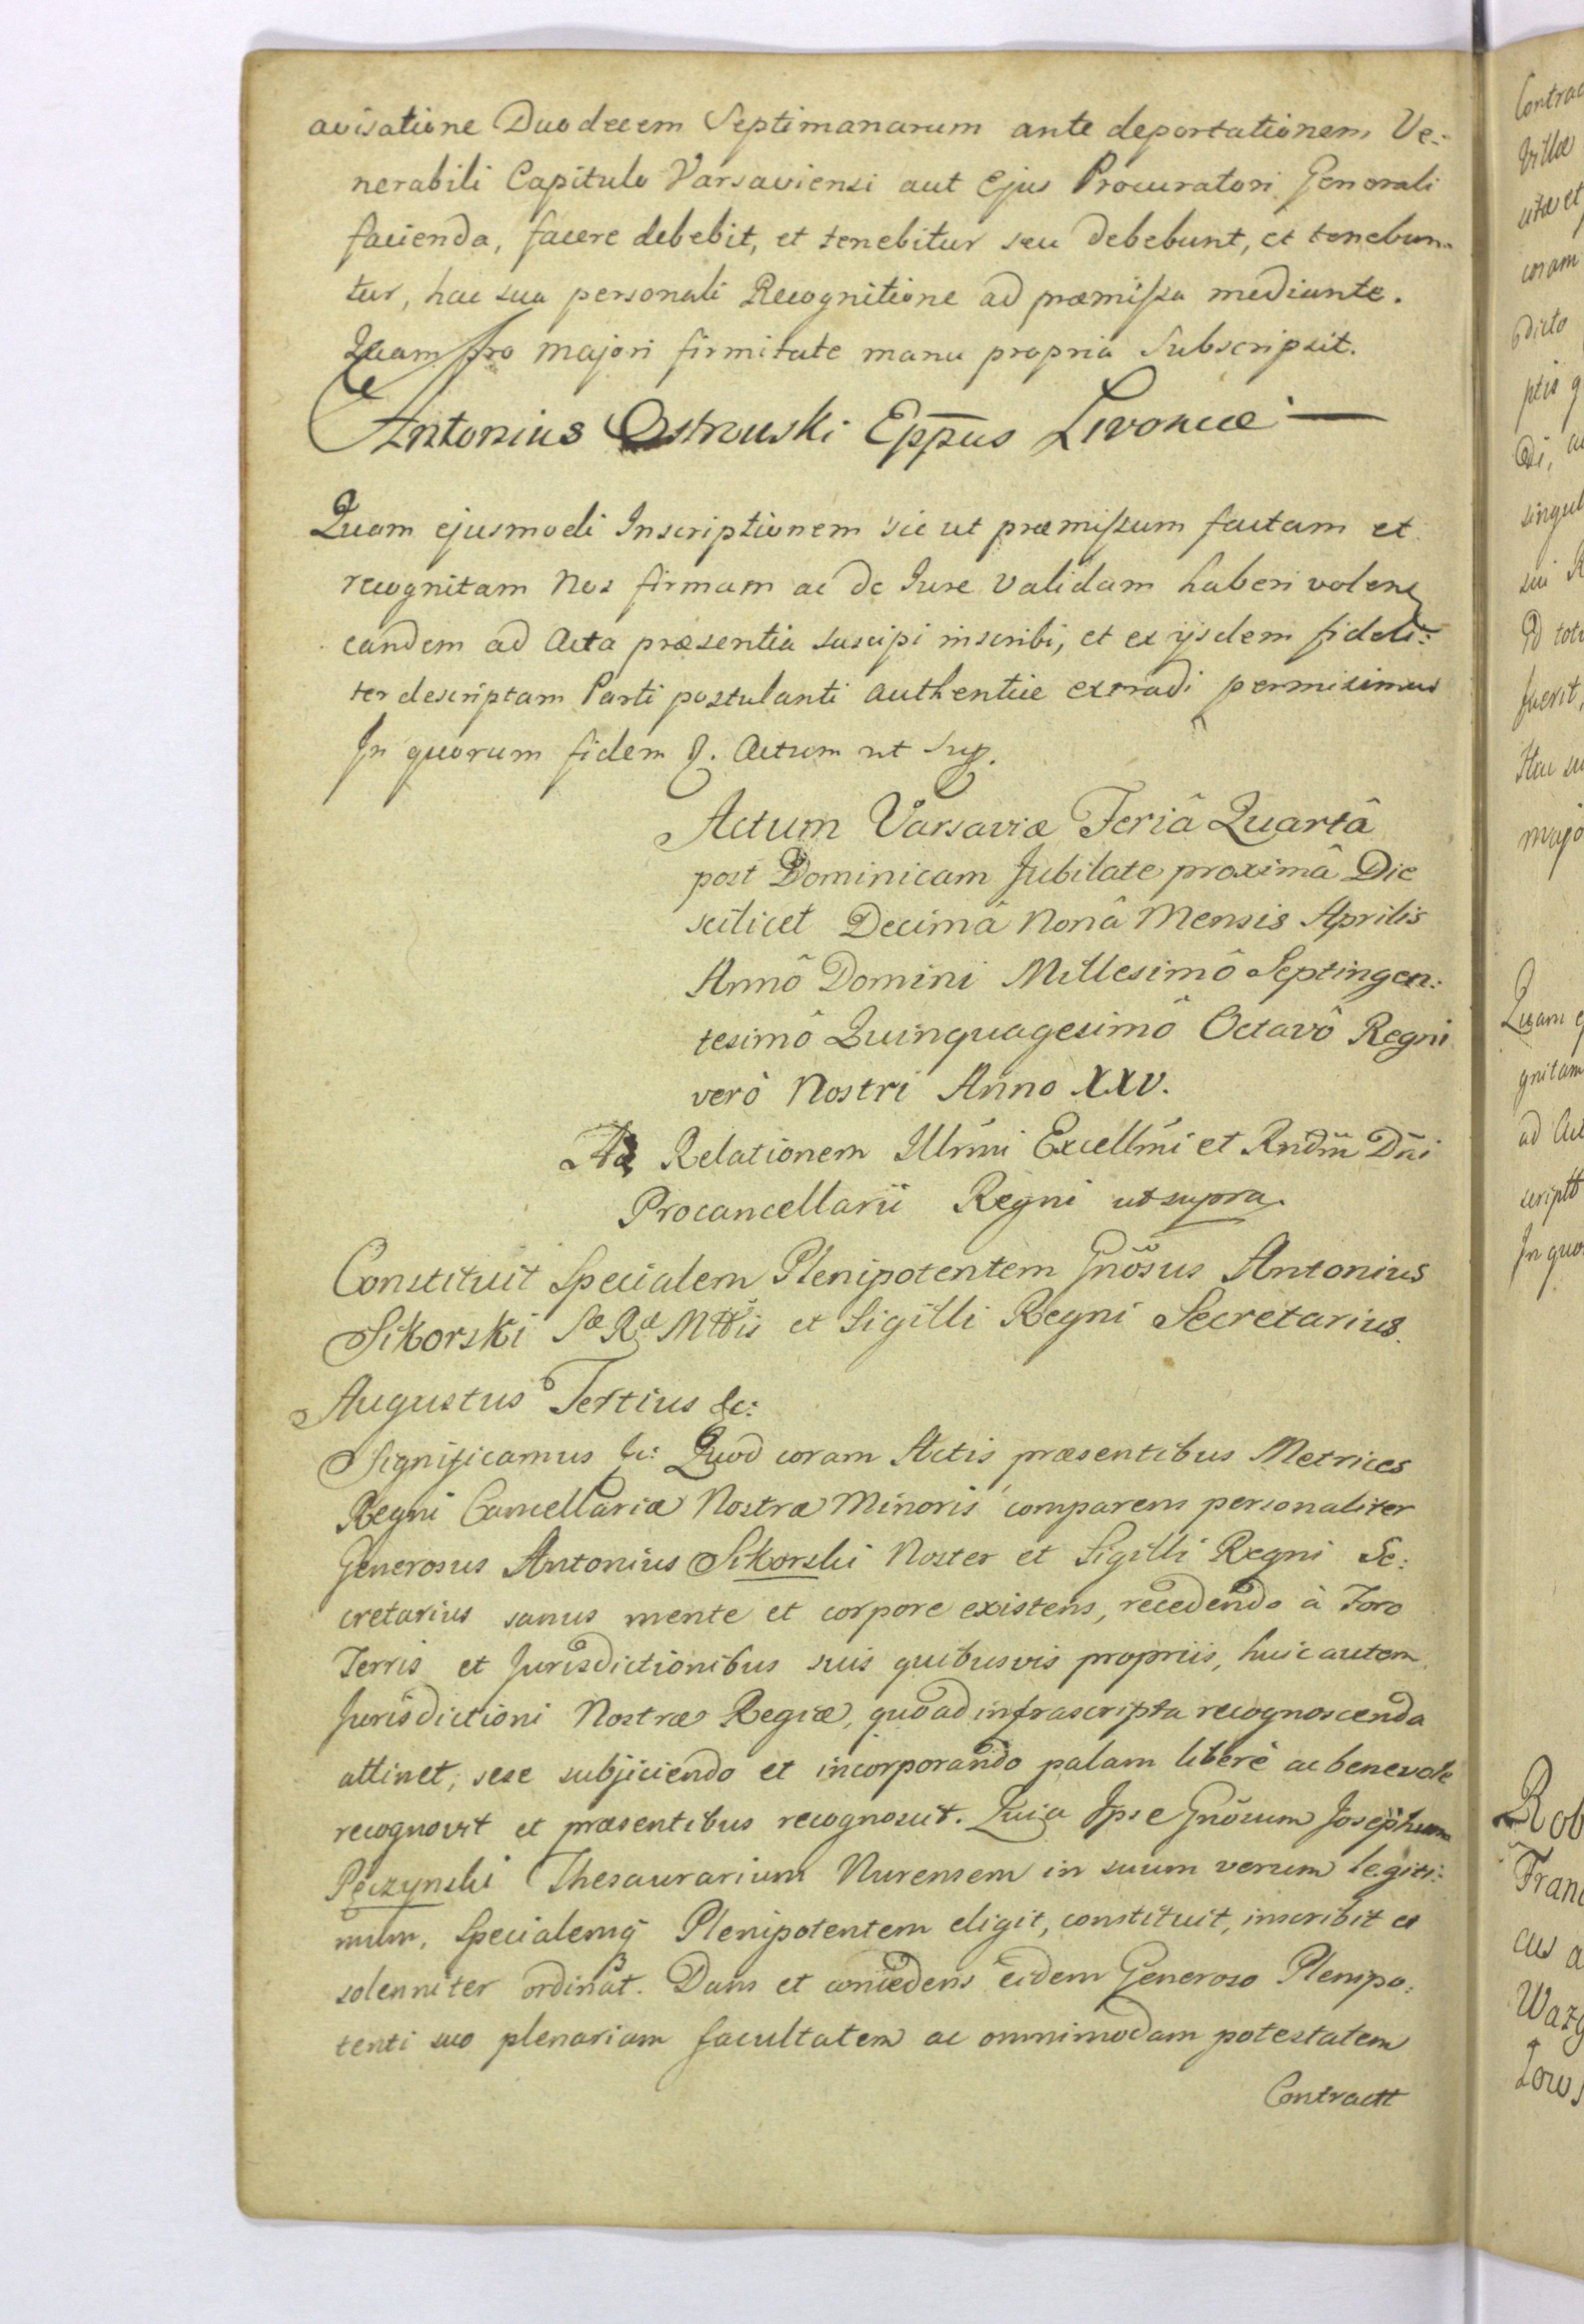 avisatione Duodecem Septimanarum ante deportationem Ve=
nerabili Capitulo Varsaviensi aut Ejus Procuratori Generali
facienda, facere debebit, et tenebitur seu debebunt, et tenebun=
tur, hac sua personali Recognitione ad præmissa mediante.
Quam pro majori firmitate manu propria Subscripsit.
Antonius Ostrowski Eppus Livoniæ
Quam ejusmodi Inscriptionem sic ut præmissum factam et
recognitam Nos firmam ac de Iure validam haberi volens
eandem ad Acta præsentia suscipi inscribi, et ex ijsdem fideli=
ter descriptam Parti postulanti authentice extradi permisimus
In quorum fidem &. Actum ut sup.
Actum Varsaviæ Feriâ Quartâ
post Dominicam Jubilate proximâ Die
scilicet Decimâ Nonâ Mensis Aprilis
Annô Domini Millesimô Septingen=
tesimô Quinquagesimô Octavô Regni
verò Nostri Anno XXV.
Ad Relationem Illrmi Excellmi et Rndm Dni
Procancellarii Regni ut supra.
Constituit Specialem Plenipotentem Gnosus Antonius
Sikorski Sæ Ræ Mttis et Sigilli Regni Secretarius.
Augustus Tertius &c:
Significamus &c: Quod coram Actis præsentibus Metrices
Regni Cancellariæ Nostræ Minoris comparens personaliter
Generosus Antonius Sikorski Noster et Sigilli Regni Se=
cretarius sanus mente et corpore existens, recedendo à Foro
Terris et Jurisdictionibus suis quibusvis propriis, huic autem
Jurisdictioni Nostræ Regiæ, quoad infrascripta recognoscenda
attinet, sese subjiciendo et incorporando palam liberè ac benevole
recognovit et præsentibus recognoscit. Quia Ipse Gnosum Josephum
Pęczynski Thesaurarium Nurensem in suum verum legiti=
mum, Specialemq Plenipotentem eligit, constituit, inscribit et
solenniter ordinat. Dans et concedens eidem Generoso Plenipo=
tenti suo plenariam facultatem ac omnimodam potestatem
Contractt
Contrac
Villæ
coram
dicto
ptis q
singul
sui R
fuerit,
Hac su
majo
Quam e
gnitam
ad Act
scriptt
In quo
Rob
Franc
cus a